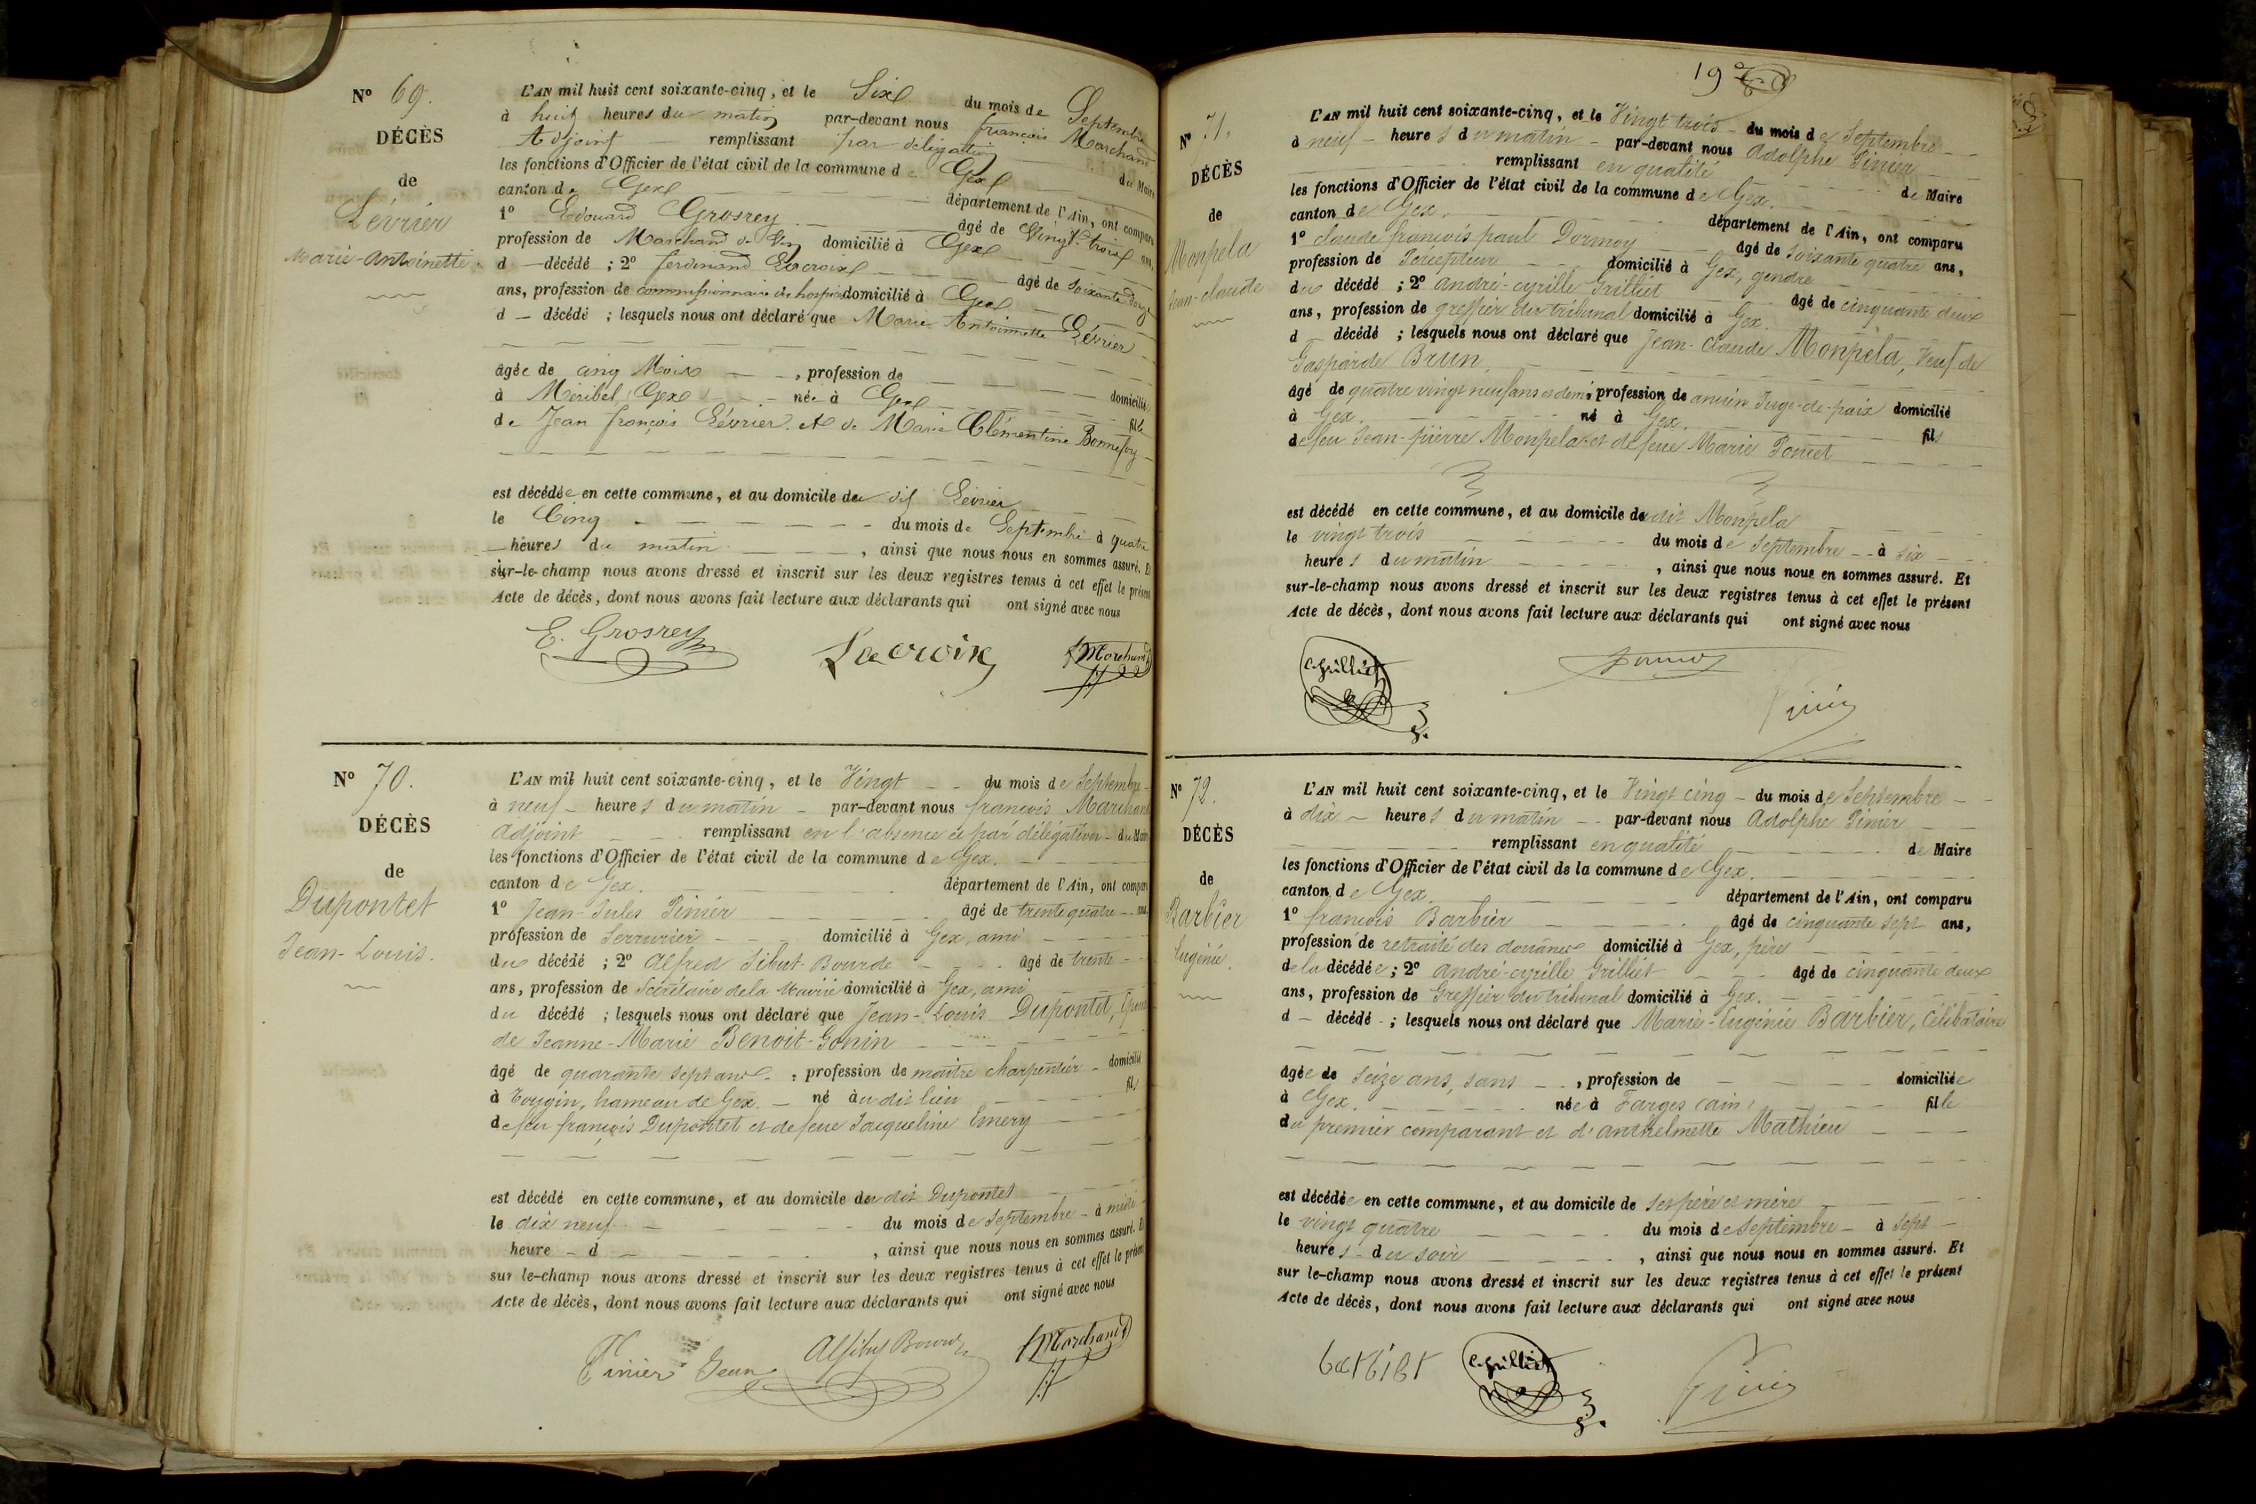 Nº 69.
DÉCÈS
de
Lévrier
Marie-Antoinette
L'AN mil huit cent soixante-cinq, et le Six du mois de Septembre
à huit heures du matin par-devant nous françois Marchand
Adjoint remplissant par délégation du Maire
les fonctions d'Officier de l'état civil de la commune de Gex
canton de Gex département de l'Ain, ont comparu
1º Edouard Grosrey âgé de Vingt-trois ans,
profession de Marchand de domicilié à Gex
d décédé ; 2º ferdinand Lacroix âgé de soixante douze
ans, profession de commissionnaire des hospices domicilié à Gex
d décédé ; lesquels nous ont déclaré que Marie Antoinette Lévrier
âgée de cinq Mois , profession de domicilié
à Méribel Gex née à Gex fille
de Jean françois Lévrier et de Marie Clémentine Bonnefoy
est décédée en cette commune, et au domicile du dit Lévrier
le Cinq du mois de Septembre à quatre
heures du matin , ainsi que nous nous en sommes assuré. Et
sur-le-champ nous avons dressé et inscrit sur les deux registres tenus à cet effet le présent
Acte de décès, dont nous avons fait lecture aux déclarants qui ont signé avec nous
E. Grosrey Lacroix Marchand
Nº 70.
DÉCÈS
de
Dupontet
Jean-Louis.
L'AN mil huit cent soixante-cinq, et le Vingt du mois de Septembre
à neuf heures du matin par-devant nous françois Marchand
adjoint remplissant en l'absence et par délégation du Maire
les fonctions d'Officier de l'état civil de la commune de Gex.
canton de Gex. département de l'Ain, ont comparu
1º Jean-Jules Pinier âgé de trente quatre ans
profession de Serrurier domicilié à Gex, ami
du décédé ; 2º Alfred Sibut-Bourde âgé de trente
ans, profession de Secrétaire de la Mairie domicilié à Gex, ami
du décédé ; lesquels nous ont déclaré que Jean-Louis Dupontet, Epoux
de Jeanne-Marie Benoit-Gonin
âgé de quarante sept ans , profession de maître charpentier domicilié
à Tougin, hameau de Gex. né au dit lieu fils
de feu françois Dupontet et de feue Jacqueline Emery
est décédé en cette commune, et au domicile du dit Dupontet
le dix neuf du mois de Septembre à midi
heure d , ainsi que nous nous en sommes assuré. Et
sur le-champ nous avons dressé et inscrit sur les deux registres tenus à cet effet le présent
Acte de décès, dont nous avons fait lecture aux déclarants qui ont signé avec nous
Pinier Jean Marchand
19
Nº 71.
DÉCÈS
de
Monpela
Jean-claude
L'AN mil huit cent soixante-cinq, et le Vingt trois du mois de Septembre
à neuf heures du matin par-devant nous Adolphe Pinier
remplissant en qualité de Maire
les fonctions d'Officier de l'état civil de la commune de Gex.
canton de Gex. département de l'Ain, ont comparu
1º claude françois paul Dormoy âgé de Soixante quatre ans,
profession de Percepteur domicilié à Gex, gendre
du décédé ; 2º andré-cyrille Grilliet âgé de cinquante deux
ans, profession de greffier du tribunal domicilié à Gex.
d décédé ; lesquels nous ont déclaré que Jean-Claude Monpela, Veuf de
Gasparde Brun.
âgé de quatre vingt neuf ans et demi, profession de ancien Juge-de-paix domicilié
à Gex. né à Gex. fils
de feu Jean-pierre Monpela et de feue Marie Poncet
est décédé en cette commune, et au domicile du dit Monpela
le vingt trois du mois de Septembre à six
heures du matin , ainsi que nous nous en sommes assuré. Et
sur-le-champ nous avons dressé et inscrit sur les deux registres tenus à cet effet le présent
Acte de décès, dont nous avons fait lecture aux déclarants qui ont signé avec nous
C. Grilliet
Nº 72.
DÉCÈS
de
Barbier
Eugénie.
L'AN mil huit cent soixante-cinq, et le Vingt cinq du mois de Septembre
à dix heures du matin par-devant nous Adolphe Pinier
remplissant en qualité de Maire
les fonctions d'Officier de l'état civil de la commune de Gex.
canton de Gex. département de l'Ain, ont comparu
1º françois Barbier âgé de cinquante sept ans,
profession de retraité des douanes domicilié à Gex, père
de la décédée ; 2º andré-cyrille Grilliet âgé de cinquante deux
ans, profession de Greffier du tribunal domicilié à Gex.
d décédé ; lesquels nous ont déclaré que Marie-Eugénie Barbier, Célibataire
âgée de Seize ans, sans , profession de domiciliée
à Gex. née à Farges (ain) fille
du premier comparant et d'anthelmette Mathieu
est décédée en cette commune, et au domicile de ses père et mère
le vingt quatre du mois de Septembre à sept
heures du soir , ainsi que nous nous en sommes assuré. Et
sur le-champ nous avons dressé et inscrit sur les deux registres tenus à cet effet le présent
Acte de décès, dont nous avons fait lecture aux déclarants qui ont signé avec nous
barbier C. Grilliet Pinier